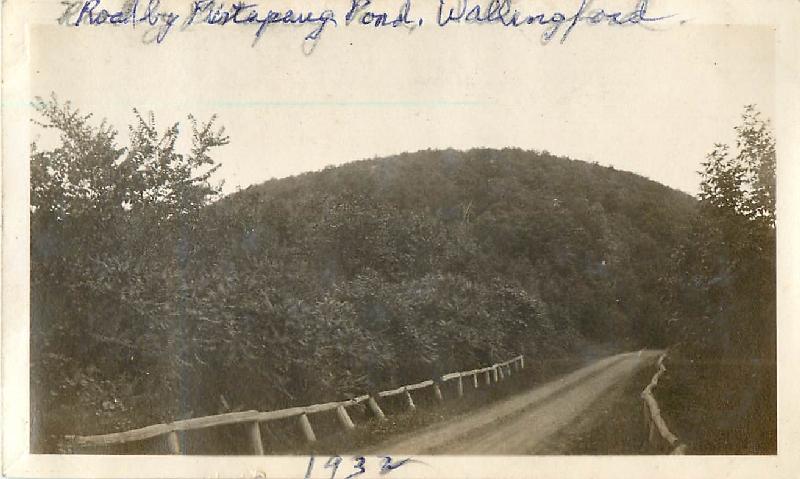 Road by Pistapaug Pond, Wallingford.
1932